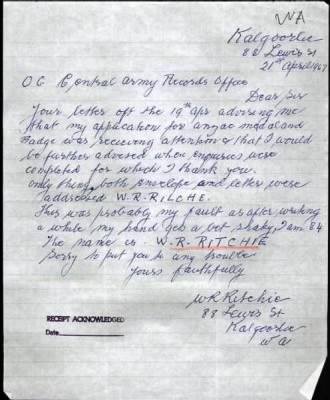 WA
Kalgoorlie
88 Lewis St
21st April 1967
O C Central Army Records Office
Dear Sir
Your letter off the 19th Apr advising me
that my application for anzac medal and
badge was recieving attention & that I would
be further advised when enquiries were
completed for which I thank you.
only thing, both envelope and letter were
addressed W.R-RILCHE.
This was probably my fault as after writing
a while my hand gets a bit shaky, I am 84
The name is. W-R-RITCHIE
Sorry to put you to any trouble
Yours faithfully
WR Ritchie
88 Lewis St
Kalgoorlie
W A
RECEIPT ACKNOWLEDGED
Date